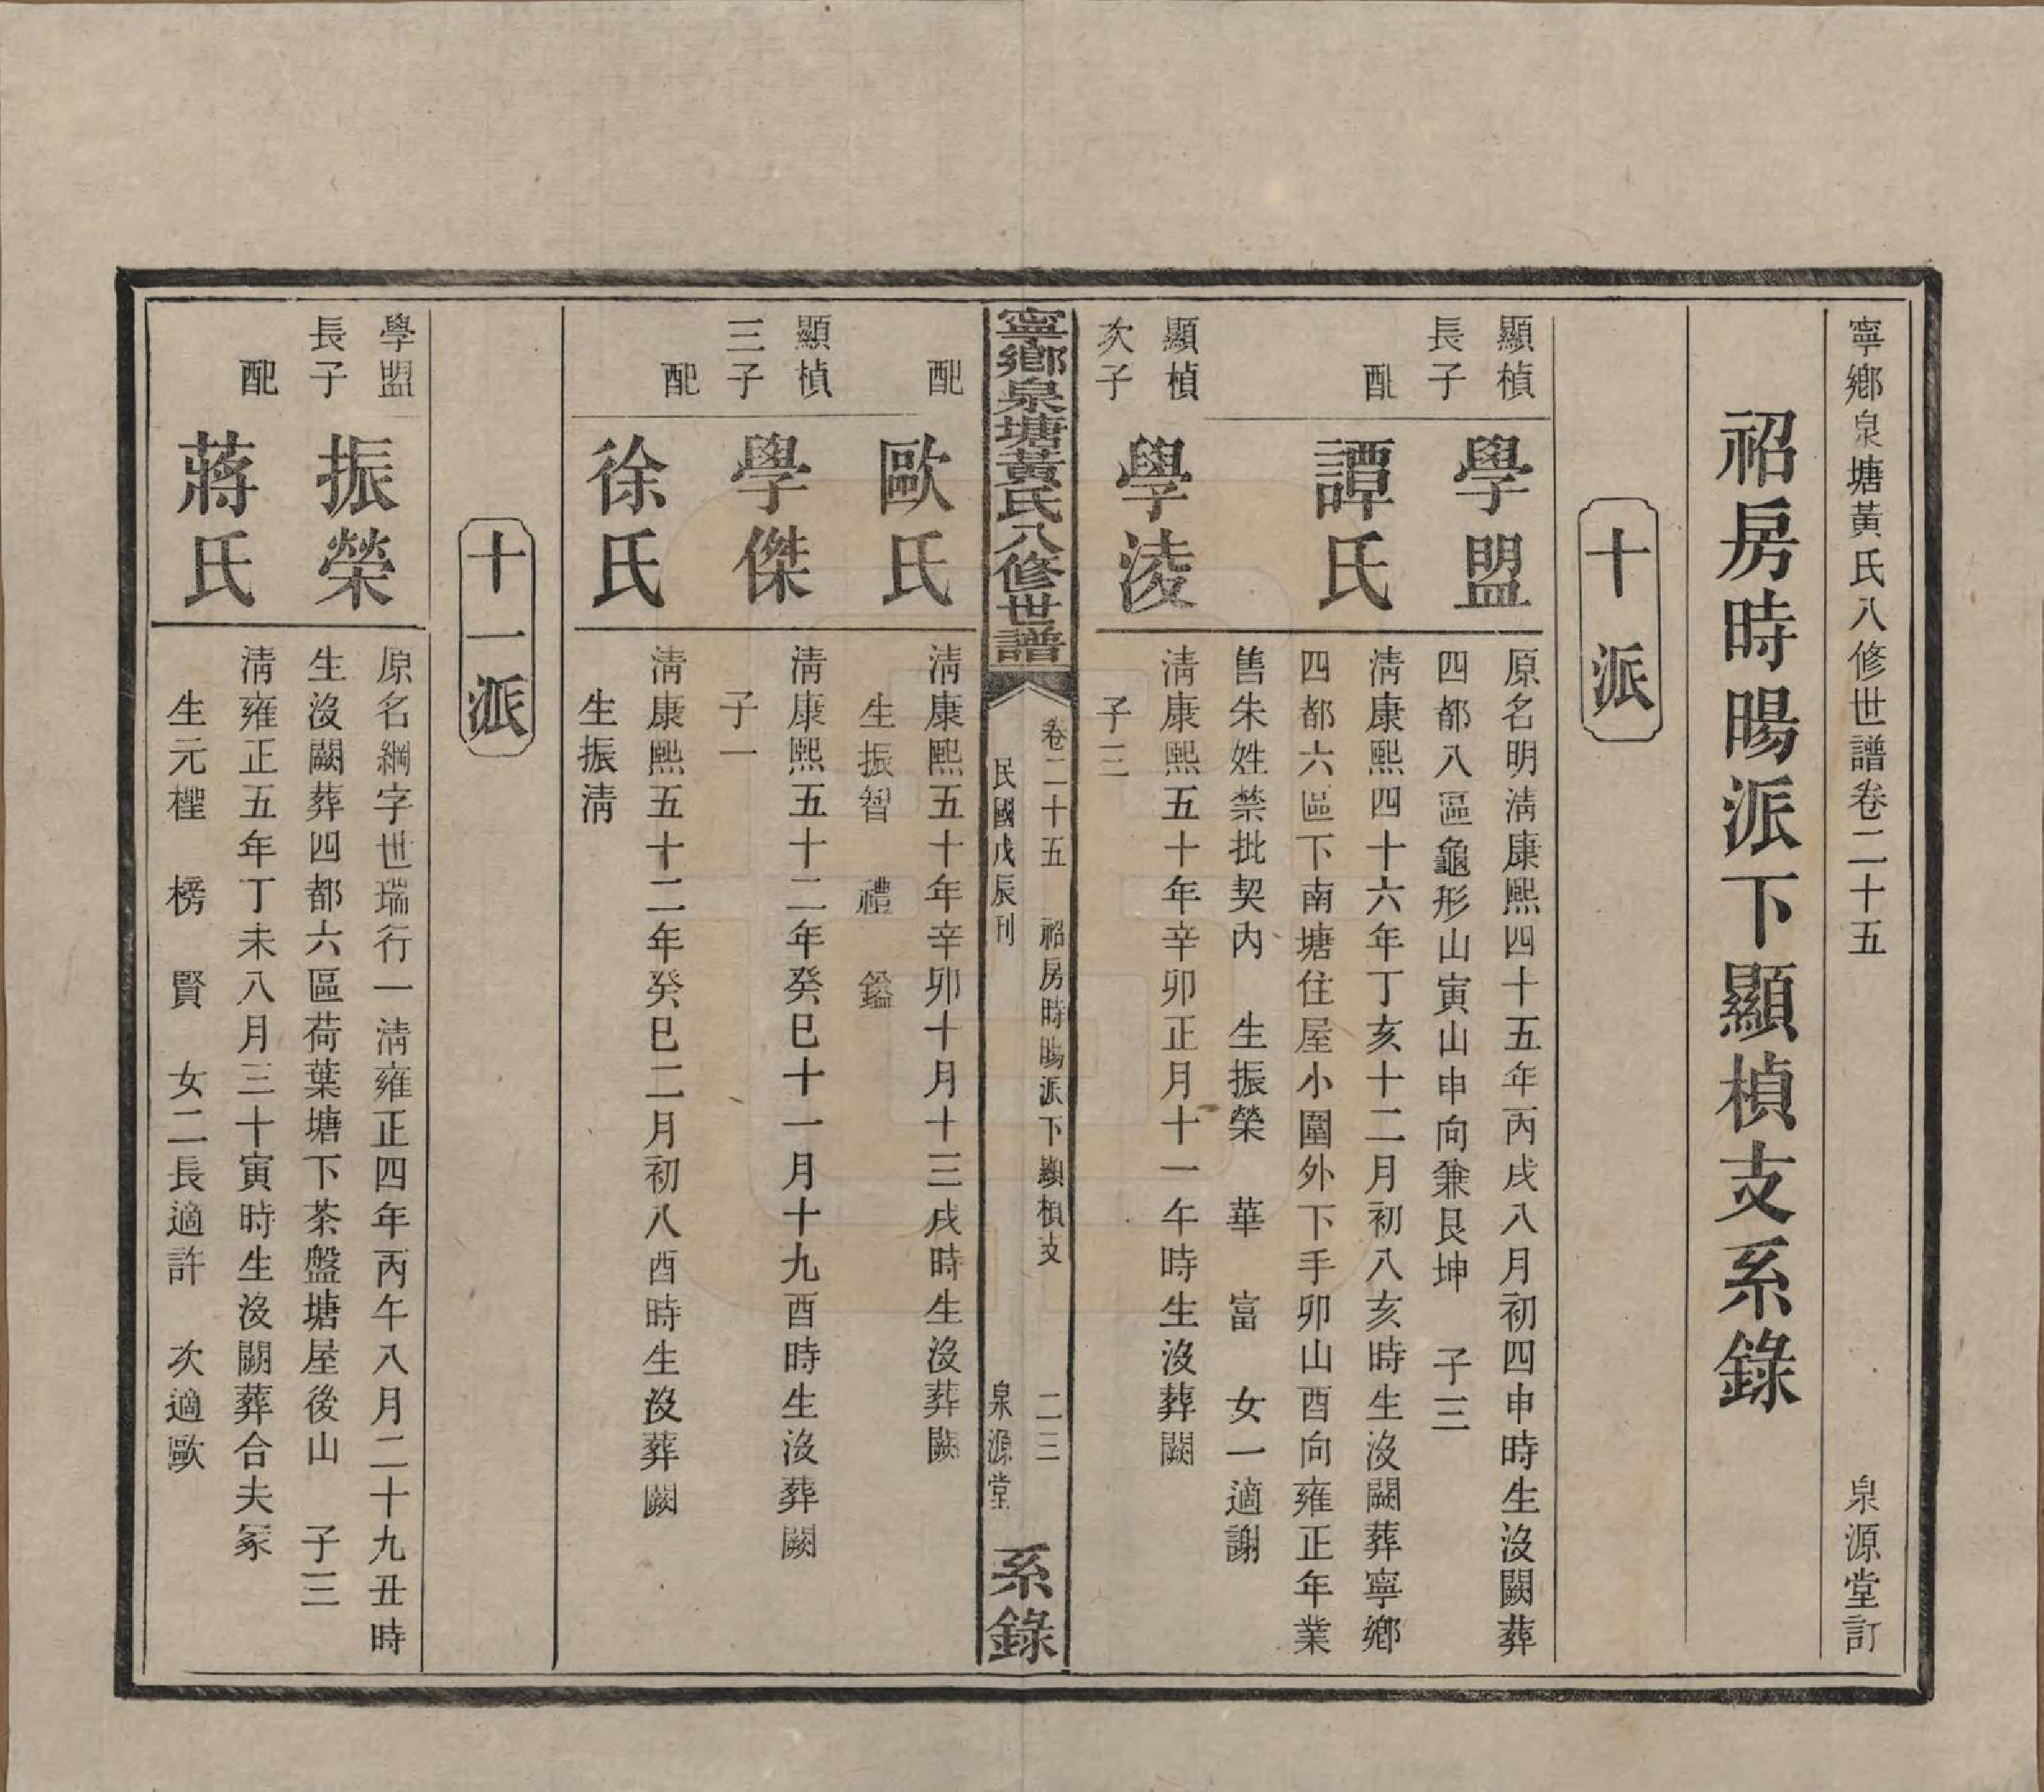 寧鄉泉塘黃氏八修世譜卷二十五　泉源堂訂
祒房時暘派下顯楨支系錄
十派
顯楨長子　學盟
原名明淸康熙四十五年丙戌八月初四申時生沒闕葬
四都八區龜形山寅山申向兼艮坤　子三
配　譚氏
淸康熙四十六年丁亥十二月初八亥時生沒闕葬寧鄉
四都六區下南塘住屋小圍外下手卯山酉向雍正年業
售朱姓禁批契內　生振榮　華　富　女一適謝
顯楨次子　學淩
淸康熙五十年辛卯正月十一午時生沒葬闕
子三
寧鄉泉塘黃氏八修世譜
卷二十五　祒房時暘派下顯楨支　二三
民國戊辰刊　泉源堂
系錄
配　歐氏
淸康熙五十年辛卯十月十三戌時生沒葬闕
生振智　禮　鎰
顯楨三子　學傑
淸康熙五十二年癸巳十一月十九酉時生沒葬闕
子一
配　徐氏
淸康熙五十二年癸巳二月初八酉時生沒葬闕
生振淸
十一派
學盟長子　振榮
原名綱字世瑞行一淸雍正四年丙午八月二十九丑時
生沒闕葬四都六區荷葉塘下茶盤塘屋後山　子三
配　蔣氏
淸雍正五年丁未八月三十寅時生沒闕葬合夫冢
生元檉　榜　賢　女二長適許　次適歐